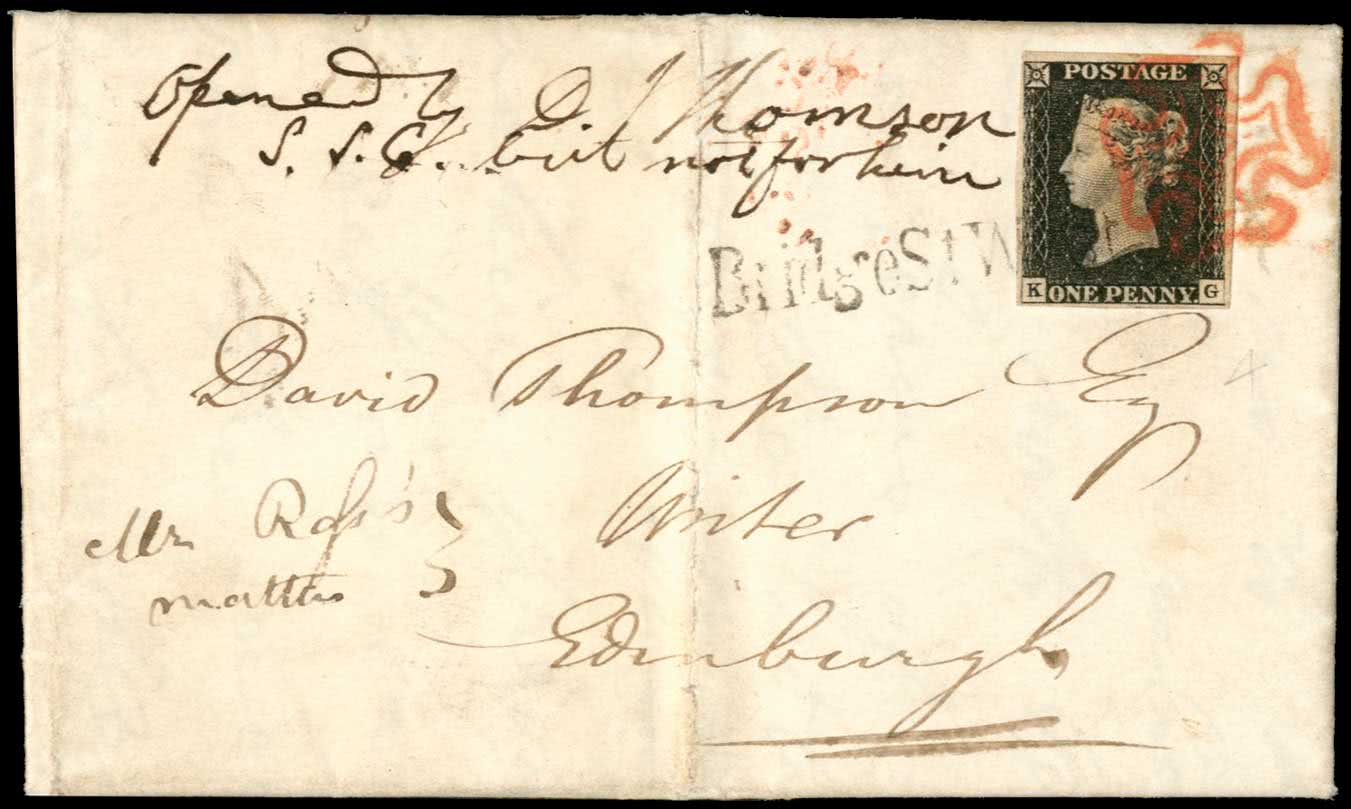 Opened by D Thomson
S. S. C. but not for him
POSTAGE
K ONE PENNY. G
Bridge St W
David Thompson Esq
Writer
Edinburgh
Mr Ross's
matters
4